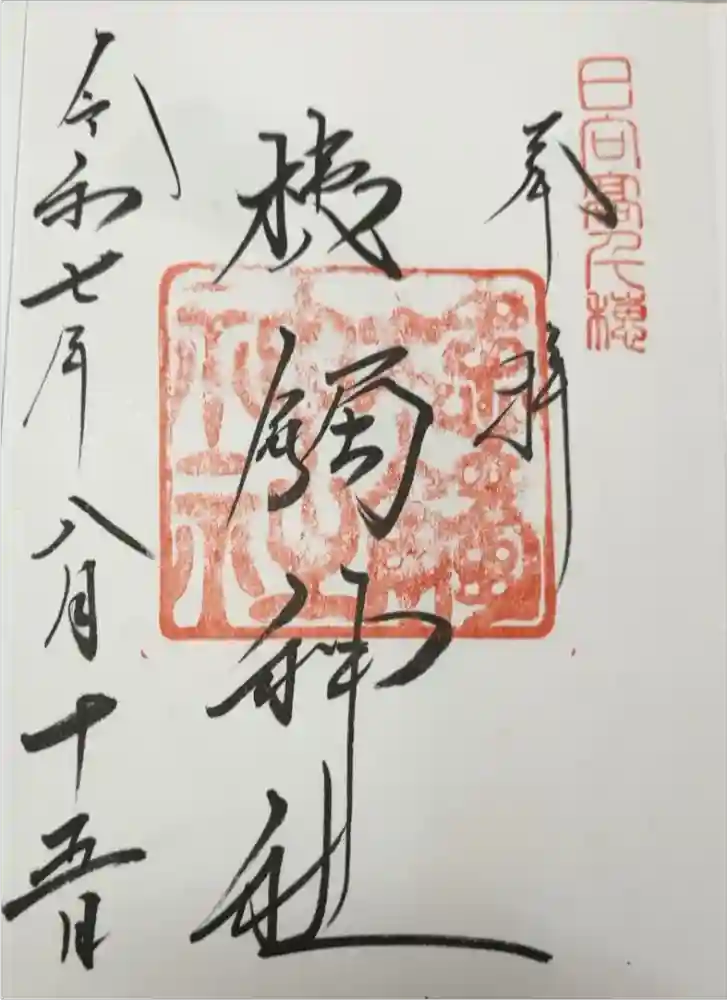 日向髙千穂
奉拝
槵觸神社
令和七年八月十五日